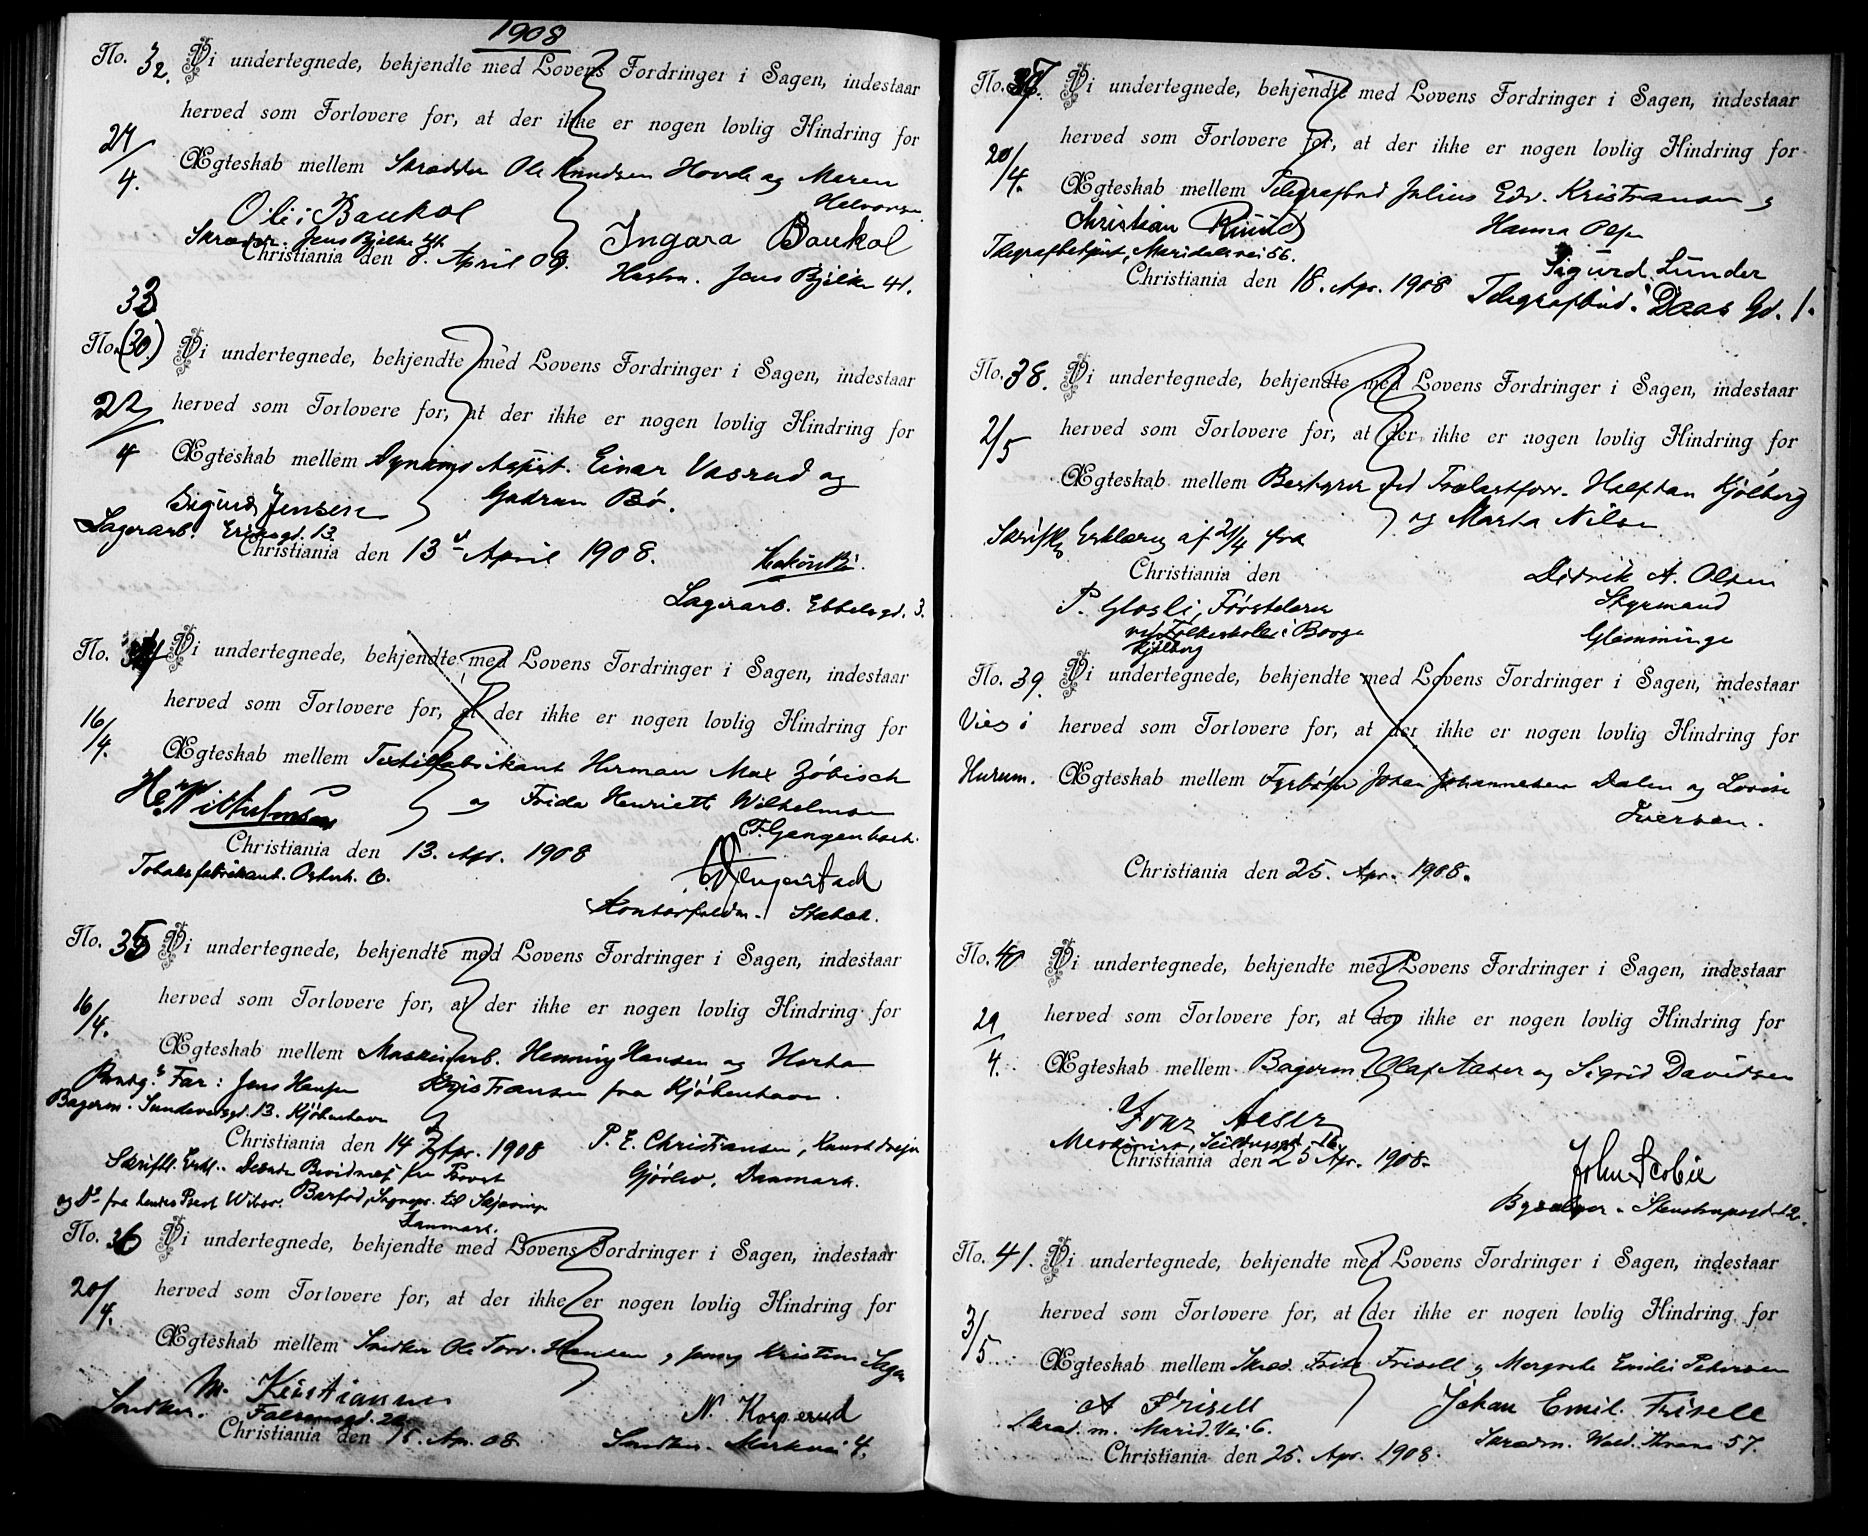 1908
No. 32. Vi undertegnede, bekjendte med Lovens Fordringer i Sagen, indestaar
herved som Forlovere for, at der ikke er nogen lovlig Hindring for
24/4. Ægteskab mellem Skrædder Ole Knudsen Hovde og Maren
Halvorsen
Ole Baukol
Skrædder. Jens Bjelke 41.
Ingara Baukol
Christiania den 8. April 08.
Hustru. Jens Bjelke 41.
33
No. (30.) Vi undertegnede, bekjendte med Lovens Fordringer i Sagen, indestaar
herved som Forlovere for, at der ikke er nogen lovlig Hindring for
22/4 Ægteskab mellem Dynamo Assist. Einar Vasrud og
Gudrun Bø.
Sigurd Jensen
Lagerarb. 13
Christiania den 13d April 1908.
Lagerarb. Ebbelsgd. 3.
No. 34 Vi undertegnede, bekjendte med Lovens Fordringer i Sagen, indestaar
herved som Forlovere for, at der ikke er nogen lovlig Hindring for
16/4. Ægteskab mellem Textilfabrikant Herman Max Zöbisch
og Frida Henriette Wilhelmsen
H. Wilhelmsen
C.F. Gengenbach.
Christiania den 13. Apr. 1908
Tobaksfabrikant.
Kontorfuldm. Stabæk.
No. 35 Vi undertegnede, bekjendte med Lovens Fordringer i Sagen, indestaar
herved som Forlovere for, at der ikke er nogen lovlig Hindring for
16/4. Ægteskab mellem Maskinarb. Henning Hansen og Herta
Kristiansen fra Kjøbenhavn.
Brudg.s Far: Jens Hansen
Bagerm. Sundevedsgd. 13. Kjøbenhavn
Christiania den 14 Apr. 1908
P. E. Christiansen, Kunstdrejer
Gjørlev, Danmark.
Skriftl. Erkl.
Danmark.
No. 36 Vi undertegnede, bekjendte med Lovens Fordringer i Sagen, indestaar
herved som Forlovere for, at der ikke er nogen lovlig Hindring for
20/4. Ægteskab mellem Snedker Ole Torv. Hansen og Jenny Kristine
M. Kristiansen
Snedker. Falsensgd.
N. Korperud
Christiania den Ap. 08.
Snedker. Markvei 4.
No. 37. Vi undertegnede, bekjendte med Lovens Fordringer i Sagen, indestaar
herved som Forlovere for, at der ikke er nogen lovlig Hindring for
20/4. Ægteskab mellem Telegrafbud Julius Edv. Kristiansen og
Hanna Olsen
Christian Ruud
Telegrafbetjent, Maridalsvei 56.
Sigurd Lunder
Christiania den 18. Apr. 1908
Telegrafbud. Daas Gd. 1.
No. 38. Vi undertegnede, bekjendte med Lovens Fordringer i Sagen, indestaar
herved som Forlovere for, at der ikke er nogen lovlig Hindring for
2/5 Ægteskab mellem Bestyrer ved Trælastforr. Halfdan Kjölberg
og Marta Nilsen
Skriftlig Erklæring af 21/4 fra
Christiania den
Didrik A. Olsen
Styrmand
Glemminge
P. Glosli, Førstelærer
ved Folkeskolen i Borge
Kjölberg
No. 39. Vi undertegnede, bekjendte med Lovens Fordringer i Sagen, indestaar
Vies i herved som Forlovere for, at der ikke er nogen lovlig Hindring for
Hurum. Ægteskab mellem Fyrbøter Johan Johannesen Dalen og Lovise
Iversen.
Christiania den 25. Apr. 1908.
No. 40 Vi undertegnede, bekjendte med Lovens Fordringer i Sagen, indestaar
herved som Forlovere for, at der ikke er nogen lovlig Hindring for
29/4. Ægteskab mellem Bagerm. Olaf Aaser og Sigrid Davidsen
Aaser
Christiania den 25 Ap. 1908.
John Scobie
Stenstrupsgd. 12.
No. 41. Vi undertegnede, bekjendte med Lovens Fordringer i Sagen, indestaar
herved som Forlovere for, at der ikke er nogen lovlig Hindring for
3/5 Ægteskab mellem Skræd. Fritz Frisell og Margrete Emilie Petersen
A Frisell
Skræd. m. Marid. Vei 6.
Johan Emil Frisell
Skrædm. Wald. Thranes 57.
Christiania den 25. Apr. 1908.